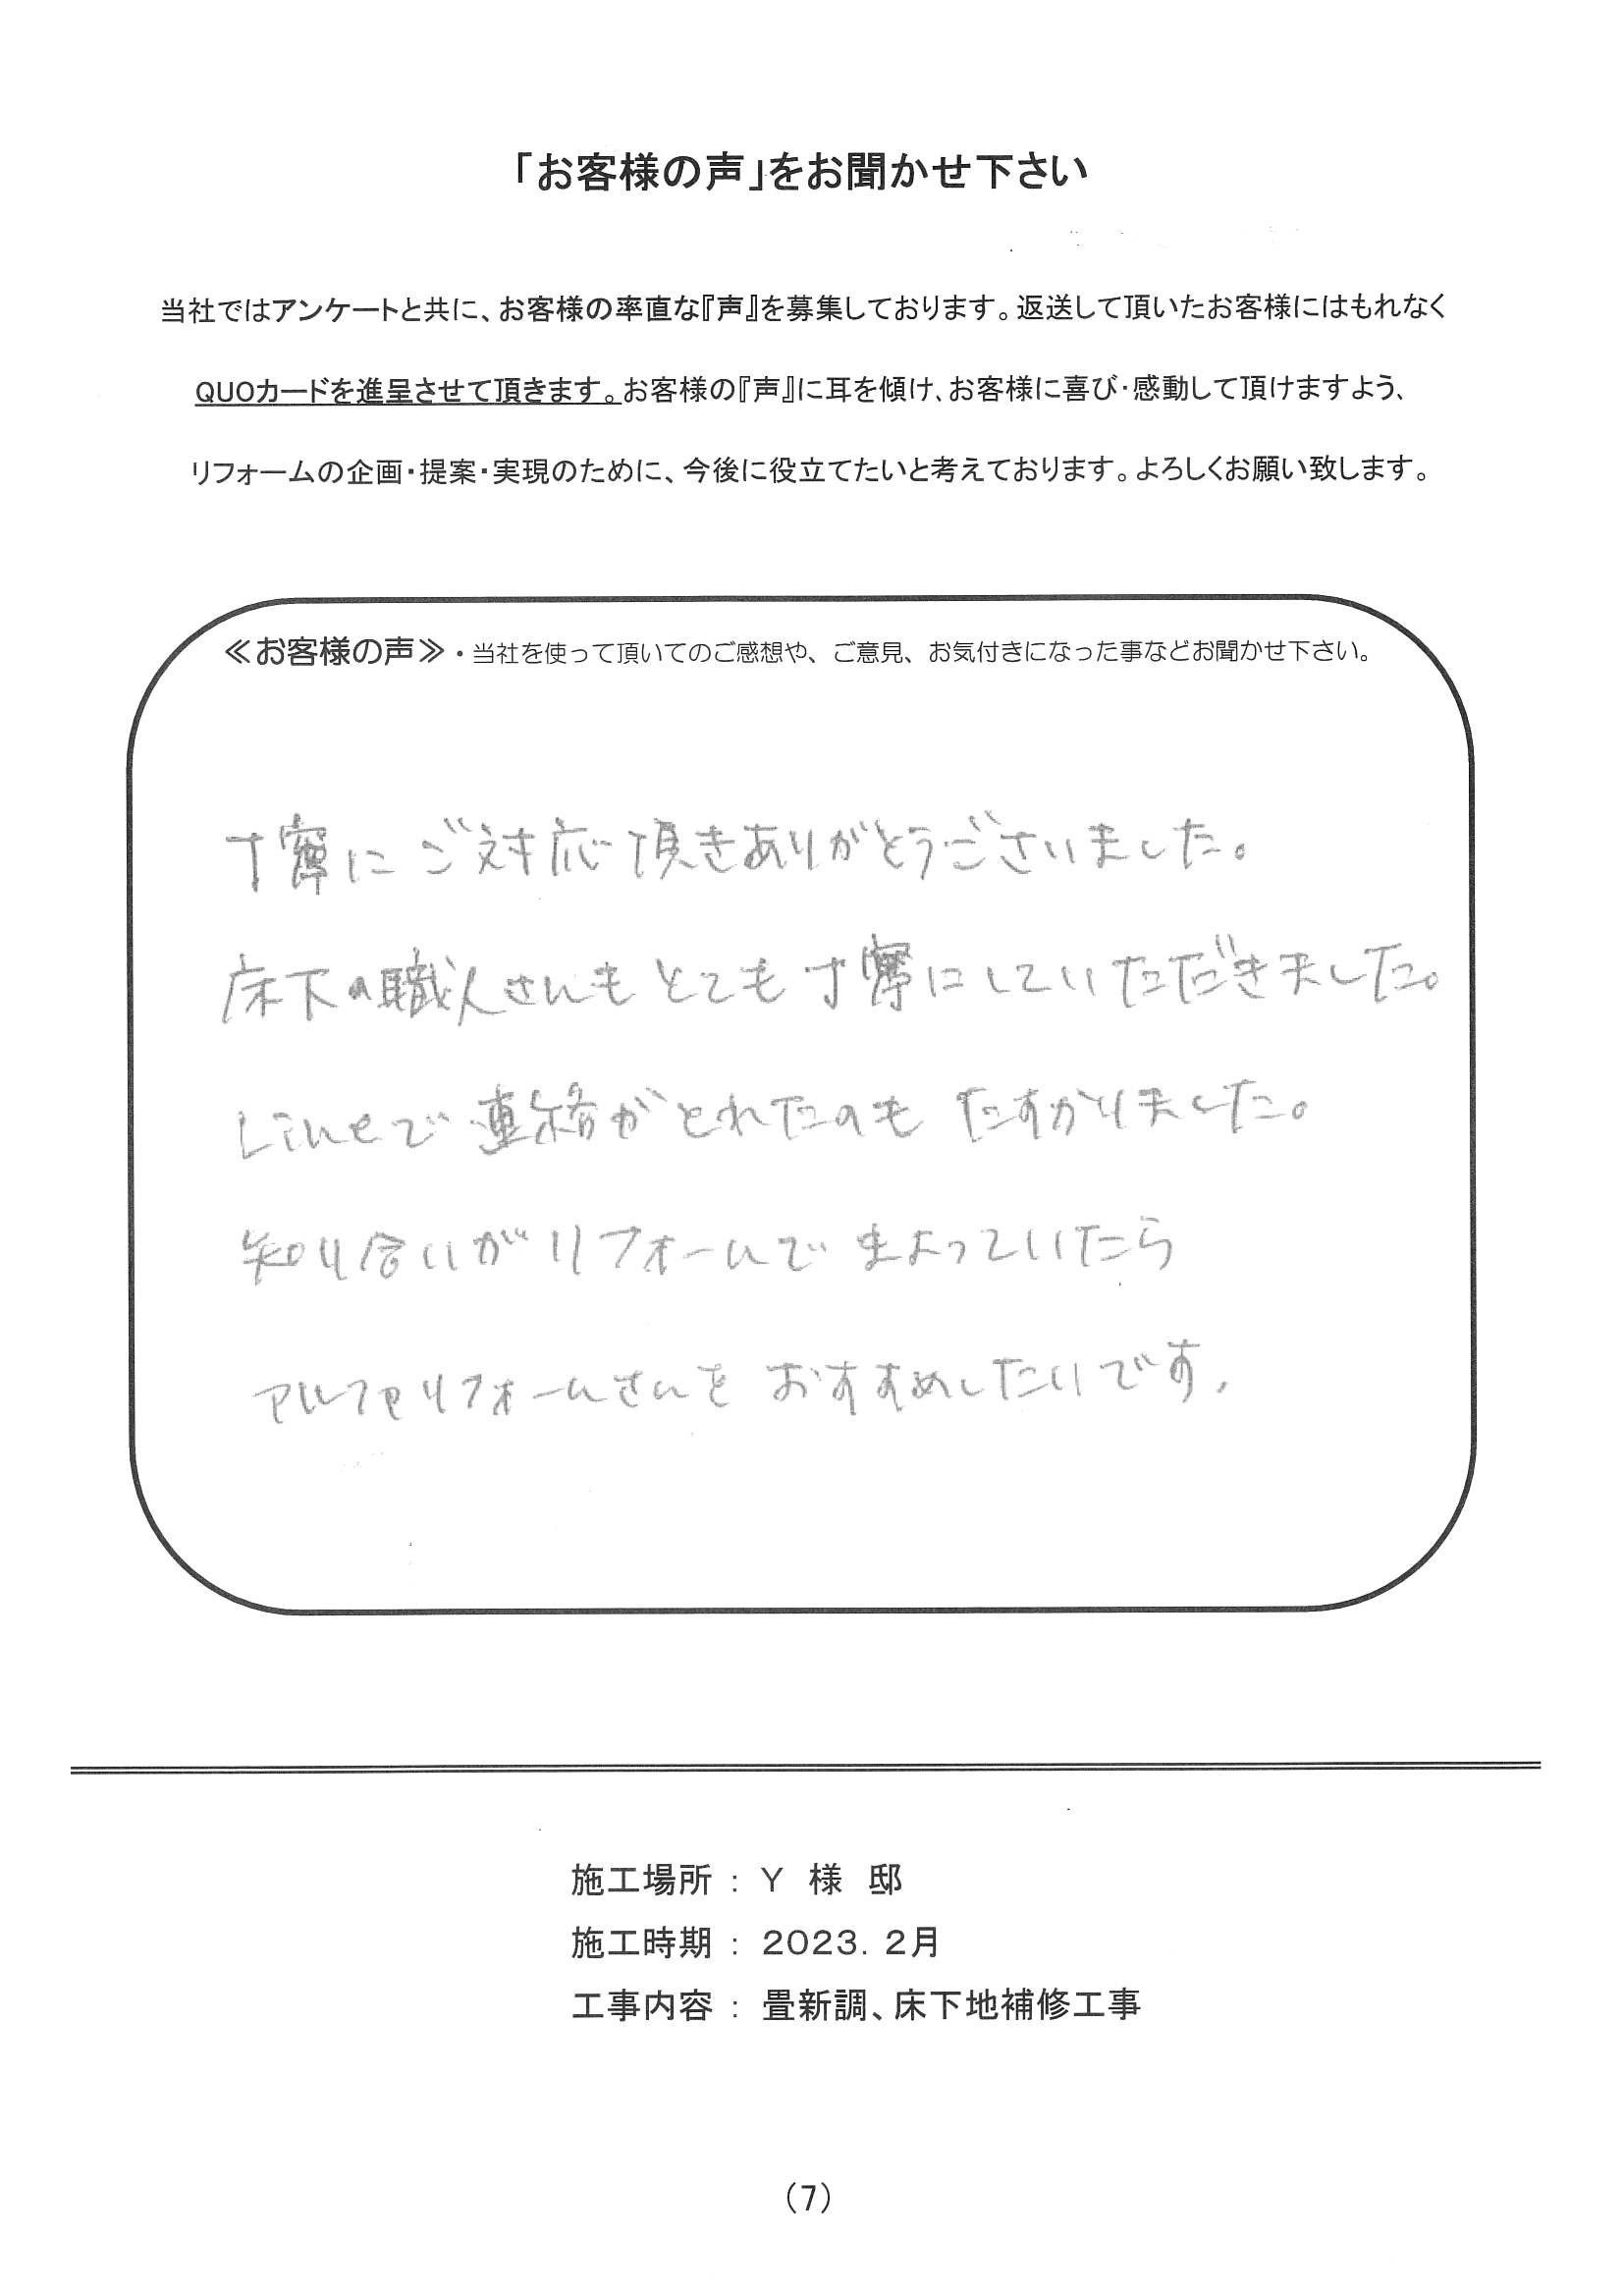 「お客様の声」をお聞かせ下さい
当社ではアンケートと共に、お客様の率直な『声』を募集しております。返送して頂いたお客様にはもれなく
QUOカードを進呈させて頂きます。お客様の『声』に耳を傾け、お客様に喜び・感動して頂けますよう、
リフォームの企画・提案・実現のために、今後に役立てたいと考えております。よろしくお願い致します。
≪お客様の声≫・当社を使って頂いてのご感想や、ご意見、お気付きになった事などお聞かせ下さい。
丁寧にご対応頂きありがとうございました。
床下の職人さんもとても丁寧にしていただきました。
Lineで連絡がとれたのもたすかりました。
知り合いがリフォームでまよっていたら
アルファリフォームさんをおすすめしたいです。
施工場所 : Y 様 邸
施工時期 : 2023. 2月
工事内容 : 畳新調、床下地補修工事
(7)